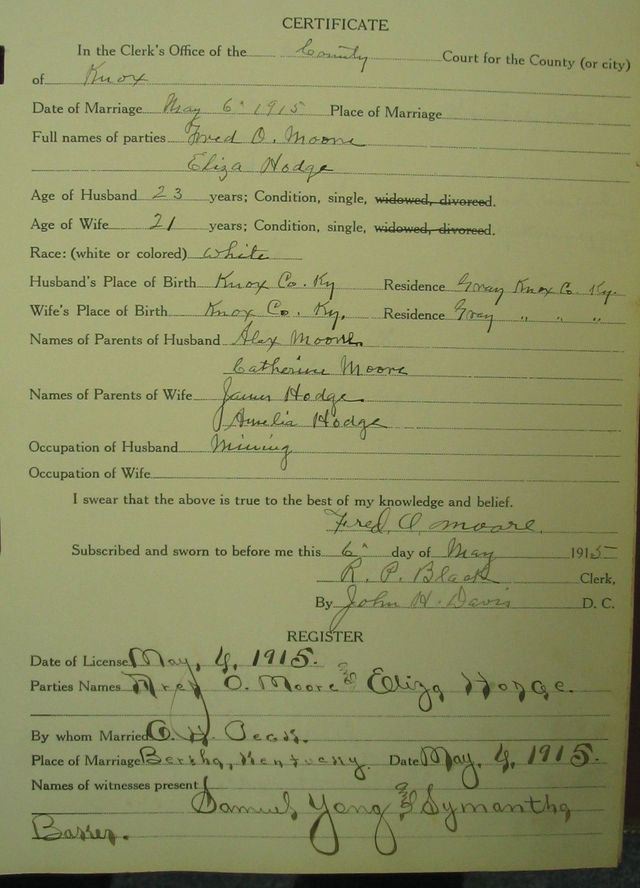 CERTIFICATE
In the Clerk's Office of the County Court for the County (or city)
of Knox
Date of Marriage May 6" 1915 Place of Marriage
Full names of parties Fred O. Moore
Eliza Hodge
Age of Husband 23 years; Condition, single, widowed, divorced.
Age of Wife 21 years; Condition, single, widowed, divorced.
Race: (white or colored) White
Husband's Place of Birth Knox Co. Ky Residence Gray Knox Co. Ky.
Wife's Place of Birth Knox Co. Ky. Residence Gray " " "
Names of Parents of Husband Alex Moore
Catherine Moore
Names of Parents of Wife James Hodge
Amelia Hodge
Occupation of Husband Mining
Occupation of Wife
I swear that the above is true to the best of my knowledge and belief.
Fred O. Moore.
Subscribed and sworn to before me this 6" day of May 1915
R. P. Black Clerk,
By John H. Davis D. C.
REGISTER
Date of License May, 4, 1915.
Parties Names O. Moore and Eliza Hodge.
By whom Married
Place of Marriage Bertha, Date May, 4, 1915.
Names of witnesses present
Samuel Yong and Symantha